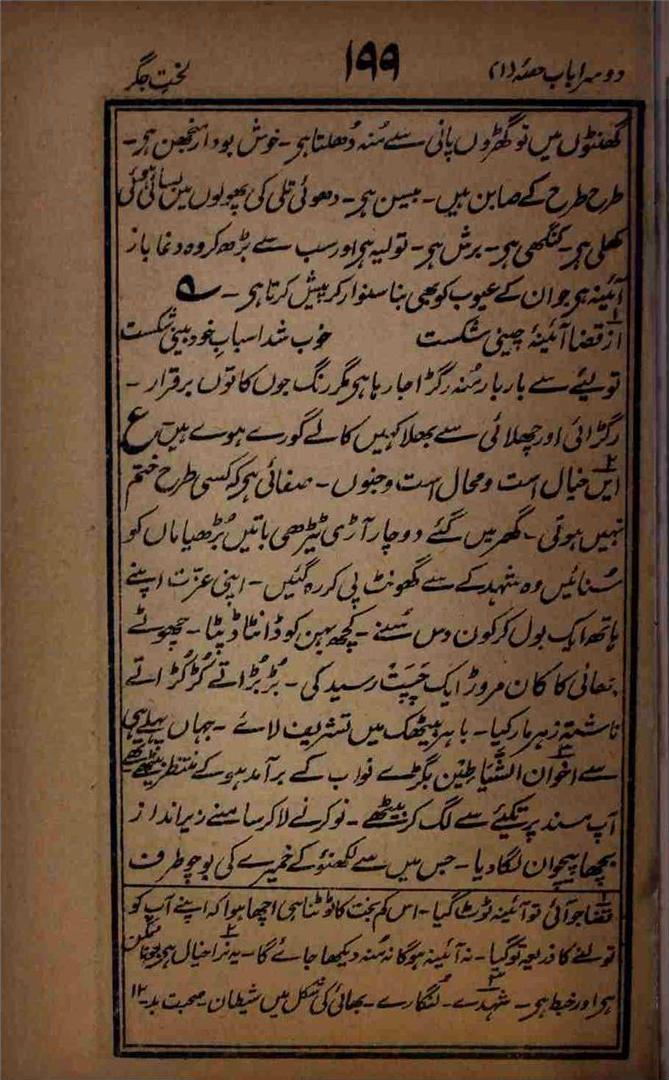 دوسرا باب حصّہ (۱) ۱۹۹ لختِ جگر
گھنٹوں میں نو گھڑوں پانی سے مُنہ دُھلتا ہی۔ خوش بودار منجھن ہی۔
طرح طرح کے صابن ہیں۔ بیسن ہی۔ دھوئی تلی کی پھولوں میں بسائی ہوئی
کھلی ہی۔ کنگھی ہی۔ برش ہی۔ تولیہ ہی اور سب سے بڑھ کر وہ دغا باز
آئینہ ہی جو ان کے عیوب کو بھی بنا سنوار کر پیش کرتا ہی۔ ؎
۱؎ از قضا آئینۂ چینی شکست خوب شد اسبابِ خود بینی شکست
تولیئے سے بار بار مُنہ رگڑا جا رہا ہی مگر رنگ جوں کا توں برقرار۔
رگڑائی اور چھلائی سے بھلا کہیں کالے گورے ہوے ہیں ع
۲؎ ایں خیال است و محال است و جنوں۔ صفائی ہی کہ کسی طرح ختم
نہیں ہوتی۔ گھر میں گئے دو چار آڑی ٹیڑھی باتیں بُڑھیا ماں کو
سُنائیں وہ شہد کے سے گھونٹ پی کر رہ گئیں۔ اپنی عزّت اپنے
ہاتھ ایک بول کر کون دس سُنے۔ کچھ بہن کو ڈانٹا ڈپٹا۔ چھوٹے
بھائی کا کان مروڑ ایک چَپَت رسید کی۔ بُڑبُڑاتے کُڑکُڑاتے
ناشتہ زہر مار کیا۔ باہر بیٹھک میں تشریف لائے۔ جہاں پہلے ہی
سے اخوان الشَّیَاطِیْن ۳؎ بگڑے نواب کے برآمد ہونے کے منتظر بیٹھے تھے
آپ مسند پر تکیئے سے لگ کر بیٹھے۔ نوکر نے لا کر سامنے زیر انداز
بچھا پیچوان لگا دیا۔ جس میں سے لکھنؤ کے خمیرے کی بو چو طرف
۱؎ قضا جو آئی تو آئینہ ٹوٹ گیا۔ اس کم بخت کا ٹوٹنا ہی اچھا ہوا کہ اپنے آپ کو
تولنے کا ذریعہ تو گیا۔ نہ آئینہ ہوگا نہ مُنہ دیکھا جائے گا۔ ۲؎ یہ نرا خیال ہی ہونا ممکن
ہی اور خبط ہی۔ ۳؎ شہدے۔ لُنگارے۔ بھائی کی شکل میں شیطان۔ صحبت بد۔ ۱۲